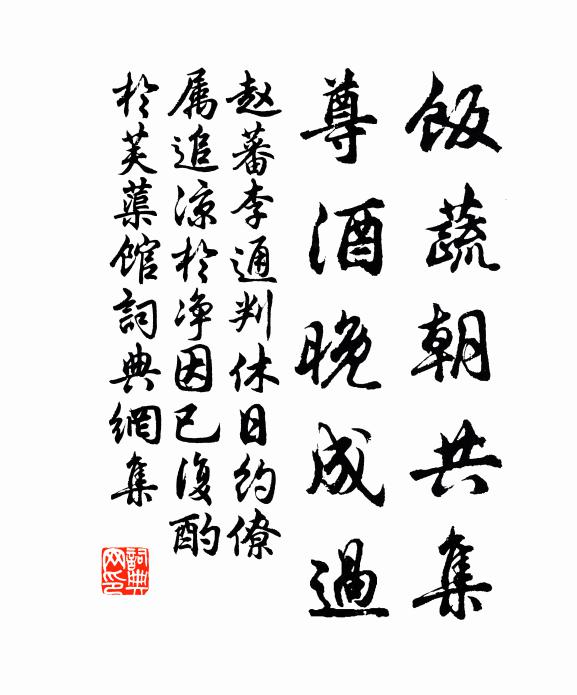 飯蔬朝共集
尊酒晚成過
赵蕃李通判休日約僚
属追凉於净因已復酌
於芙蕖馆詞典網集
詞典
网印